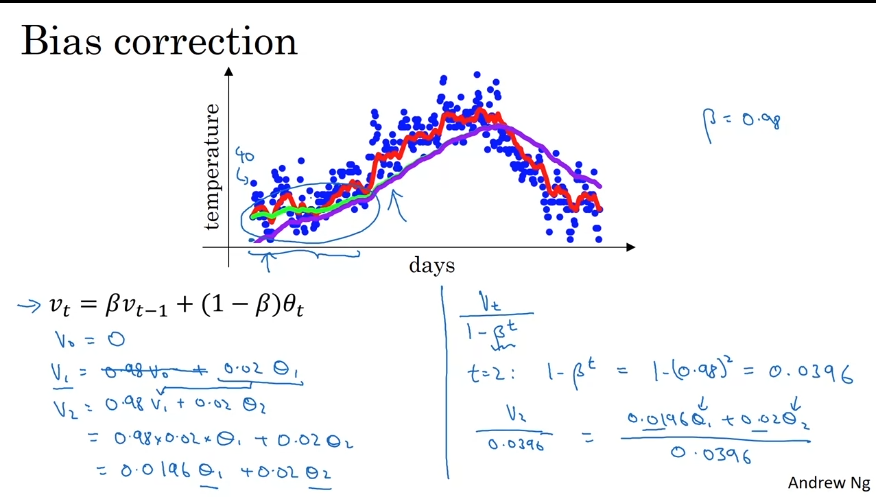 Bias correction
β = 0.98
40
temperature
days
→ vₜ = βvₜ₋₁ + (1 − β)θₜ
V₀ = 0
V₁ = 0.98 V₀ + 0.02 θ₁
V₂ = 0.98 V₁ + 0.02 θ₂
= 0.98 x 0.02 x θ₁ + 0.02 θ₂
= 0.0196 θ₁ + 0.02 θ₂
Vₜ
1 - βᵗ
t=2: 1 - βᵗ = 1 - (0.98)² = 0.0396
V₂ / 0.0396 = 0.0196θ₁ + 0.02θ₂ / 0.0396
Andrew Ng